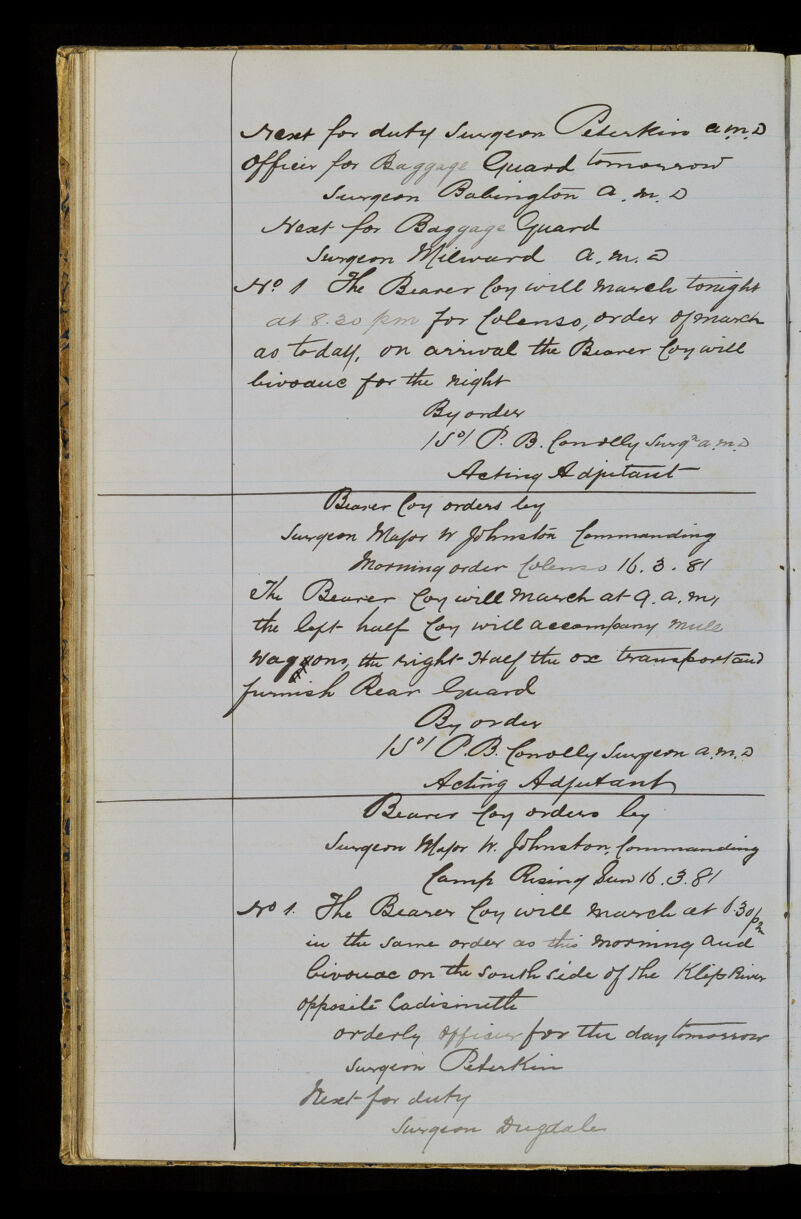 Next for duty Surgeon Peterkin a.m.D
Officer for Baggage Guard tomorrow
Surgeon Babington A.m.D
Next for Baggage Guard
Surgeon Milward A.m.D
No 1 The Bearer Coy will march tonight
at 8.30 pm for Colenso, order of march
as today, on arrival the Bearer Coy will
bivoauc for the night
By order
/Sd/ P. B. Conolly Surgn a.m.D
Acting Adjutant
Bearer Coy orders by
Surgeon Major W Johnston Commanding
Morning order Colenso 16.3.81
The Bearer Coy will march at 9.a.m,
the left half Coy will accompany mule
waggons, the right Half the ox transport and
furnish Rear Guard
By order
/Sd/ P.B. Conolly Surgeon a.m.D
Acting Adjutant
Bearer Coy orders by
Surgeon Major W. Johnston, Commanding
Camp Rising Sun 16.3.81
No 1. The Bearer Coy will march at 6.30 pm
in the same order as this morning and
bivouac on the south side of the Klip River
opposite Ladismith
orderly officer for the day tomorrow
Surgeon Peterkin
Next for duty
Surgeon Dugdale